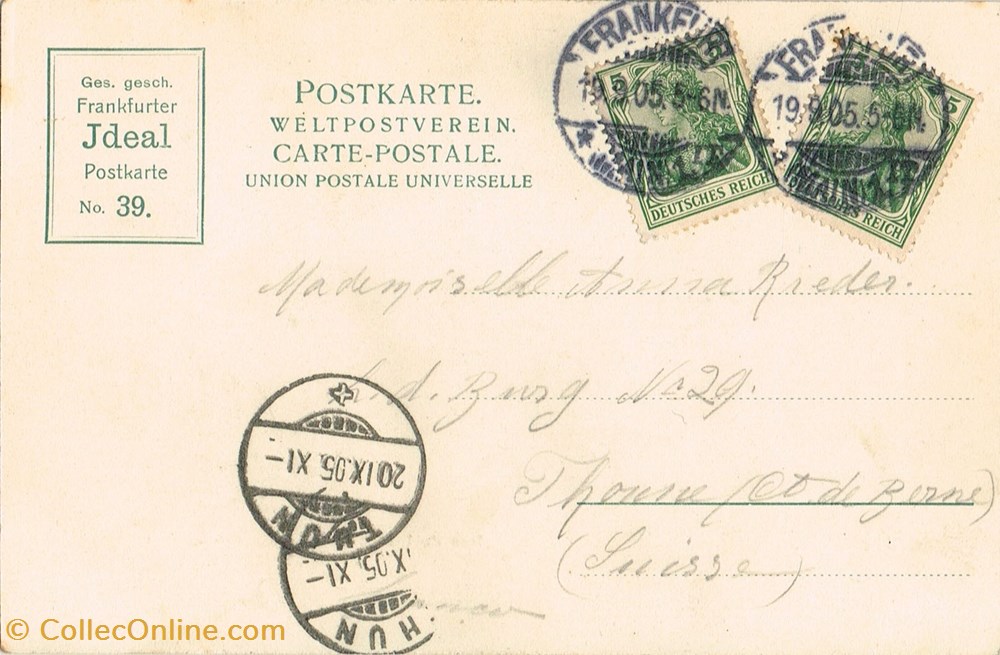 Ges. gesch.
Frankfurter
Jdeal
Postkarte
No. 39.
POSTKARTE.
WELTPOSTVEREIN.
CARTE-POSTALE.
UNION POSTALE UNIVERSELLE
FRANKFU
19.9.05.5-6N.
5
DEUTSCHES REICH
FRA
19.9.05.5-6N.
MAIN
5
DEUTSCHES REICH
Mademoiselle Anna Rieder.
Burg No 29.
Thoune (Ct. de Berne)
(Suisse)
THUN
20 IX.05. XI-
HUN
.IX.05. XI-
© CollecOnline.com